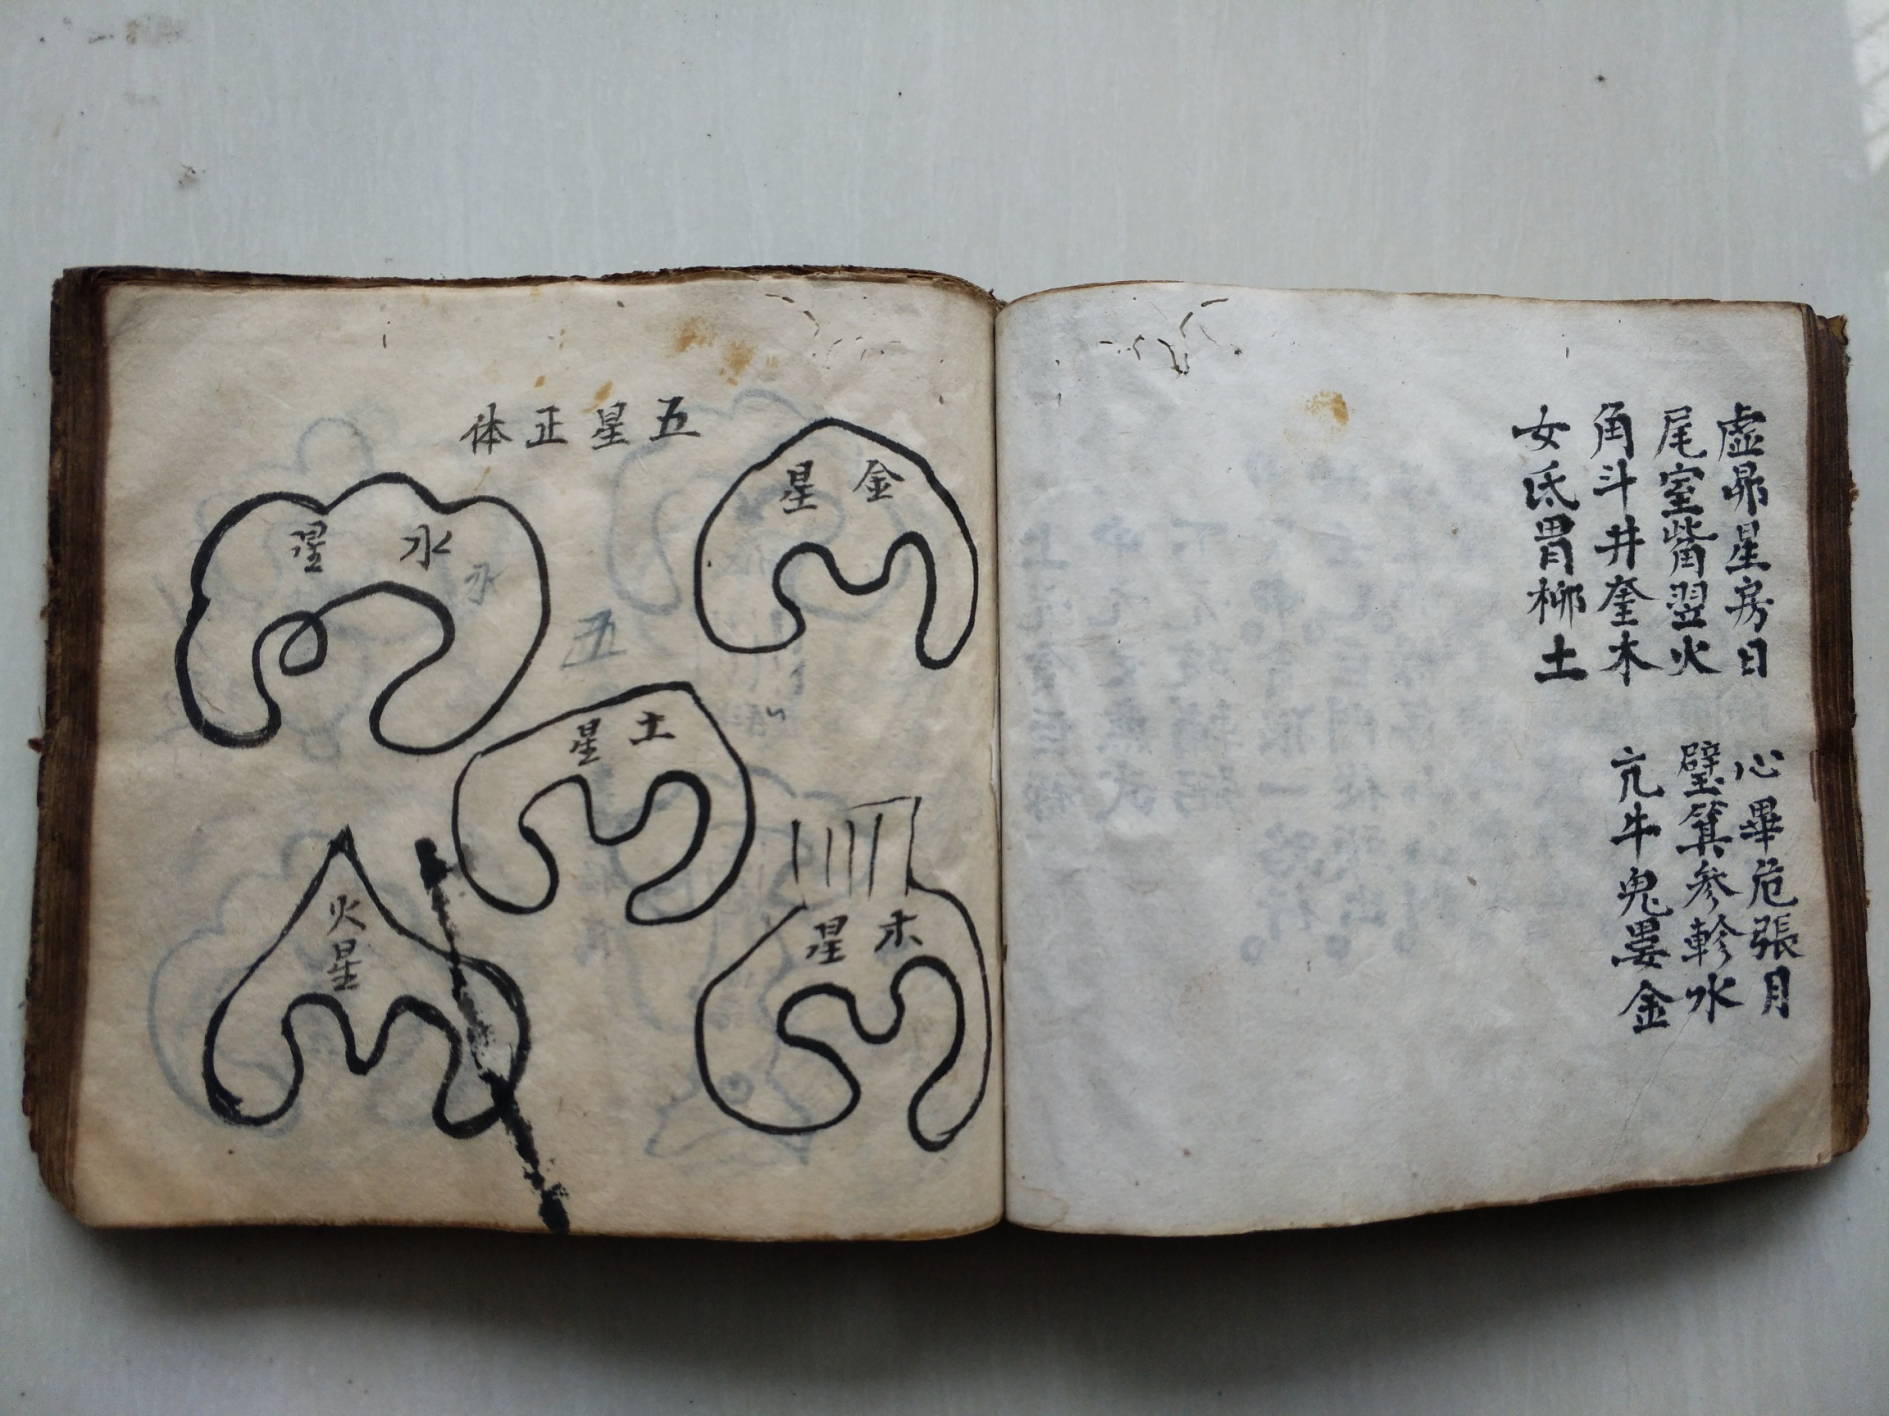 虛昴星房日
心畢危張月
尾室觜翌火
壁箕參軫水
角斗井奎木
亢牛鬼婁金
女氐胃柳土
五星正体
金星
水星
水
五
土星
木星
火星